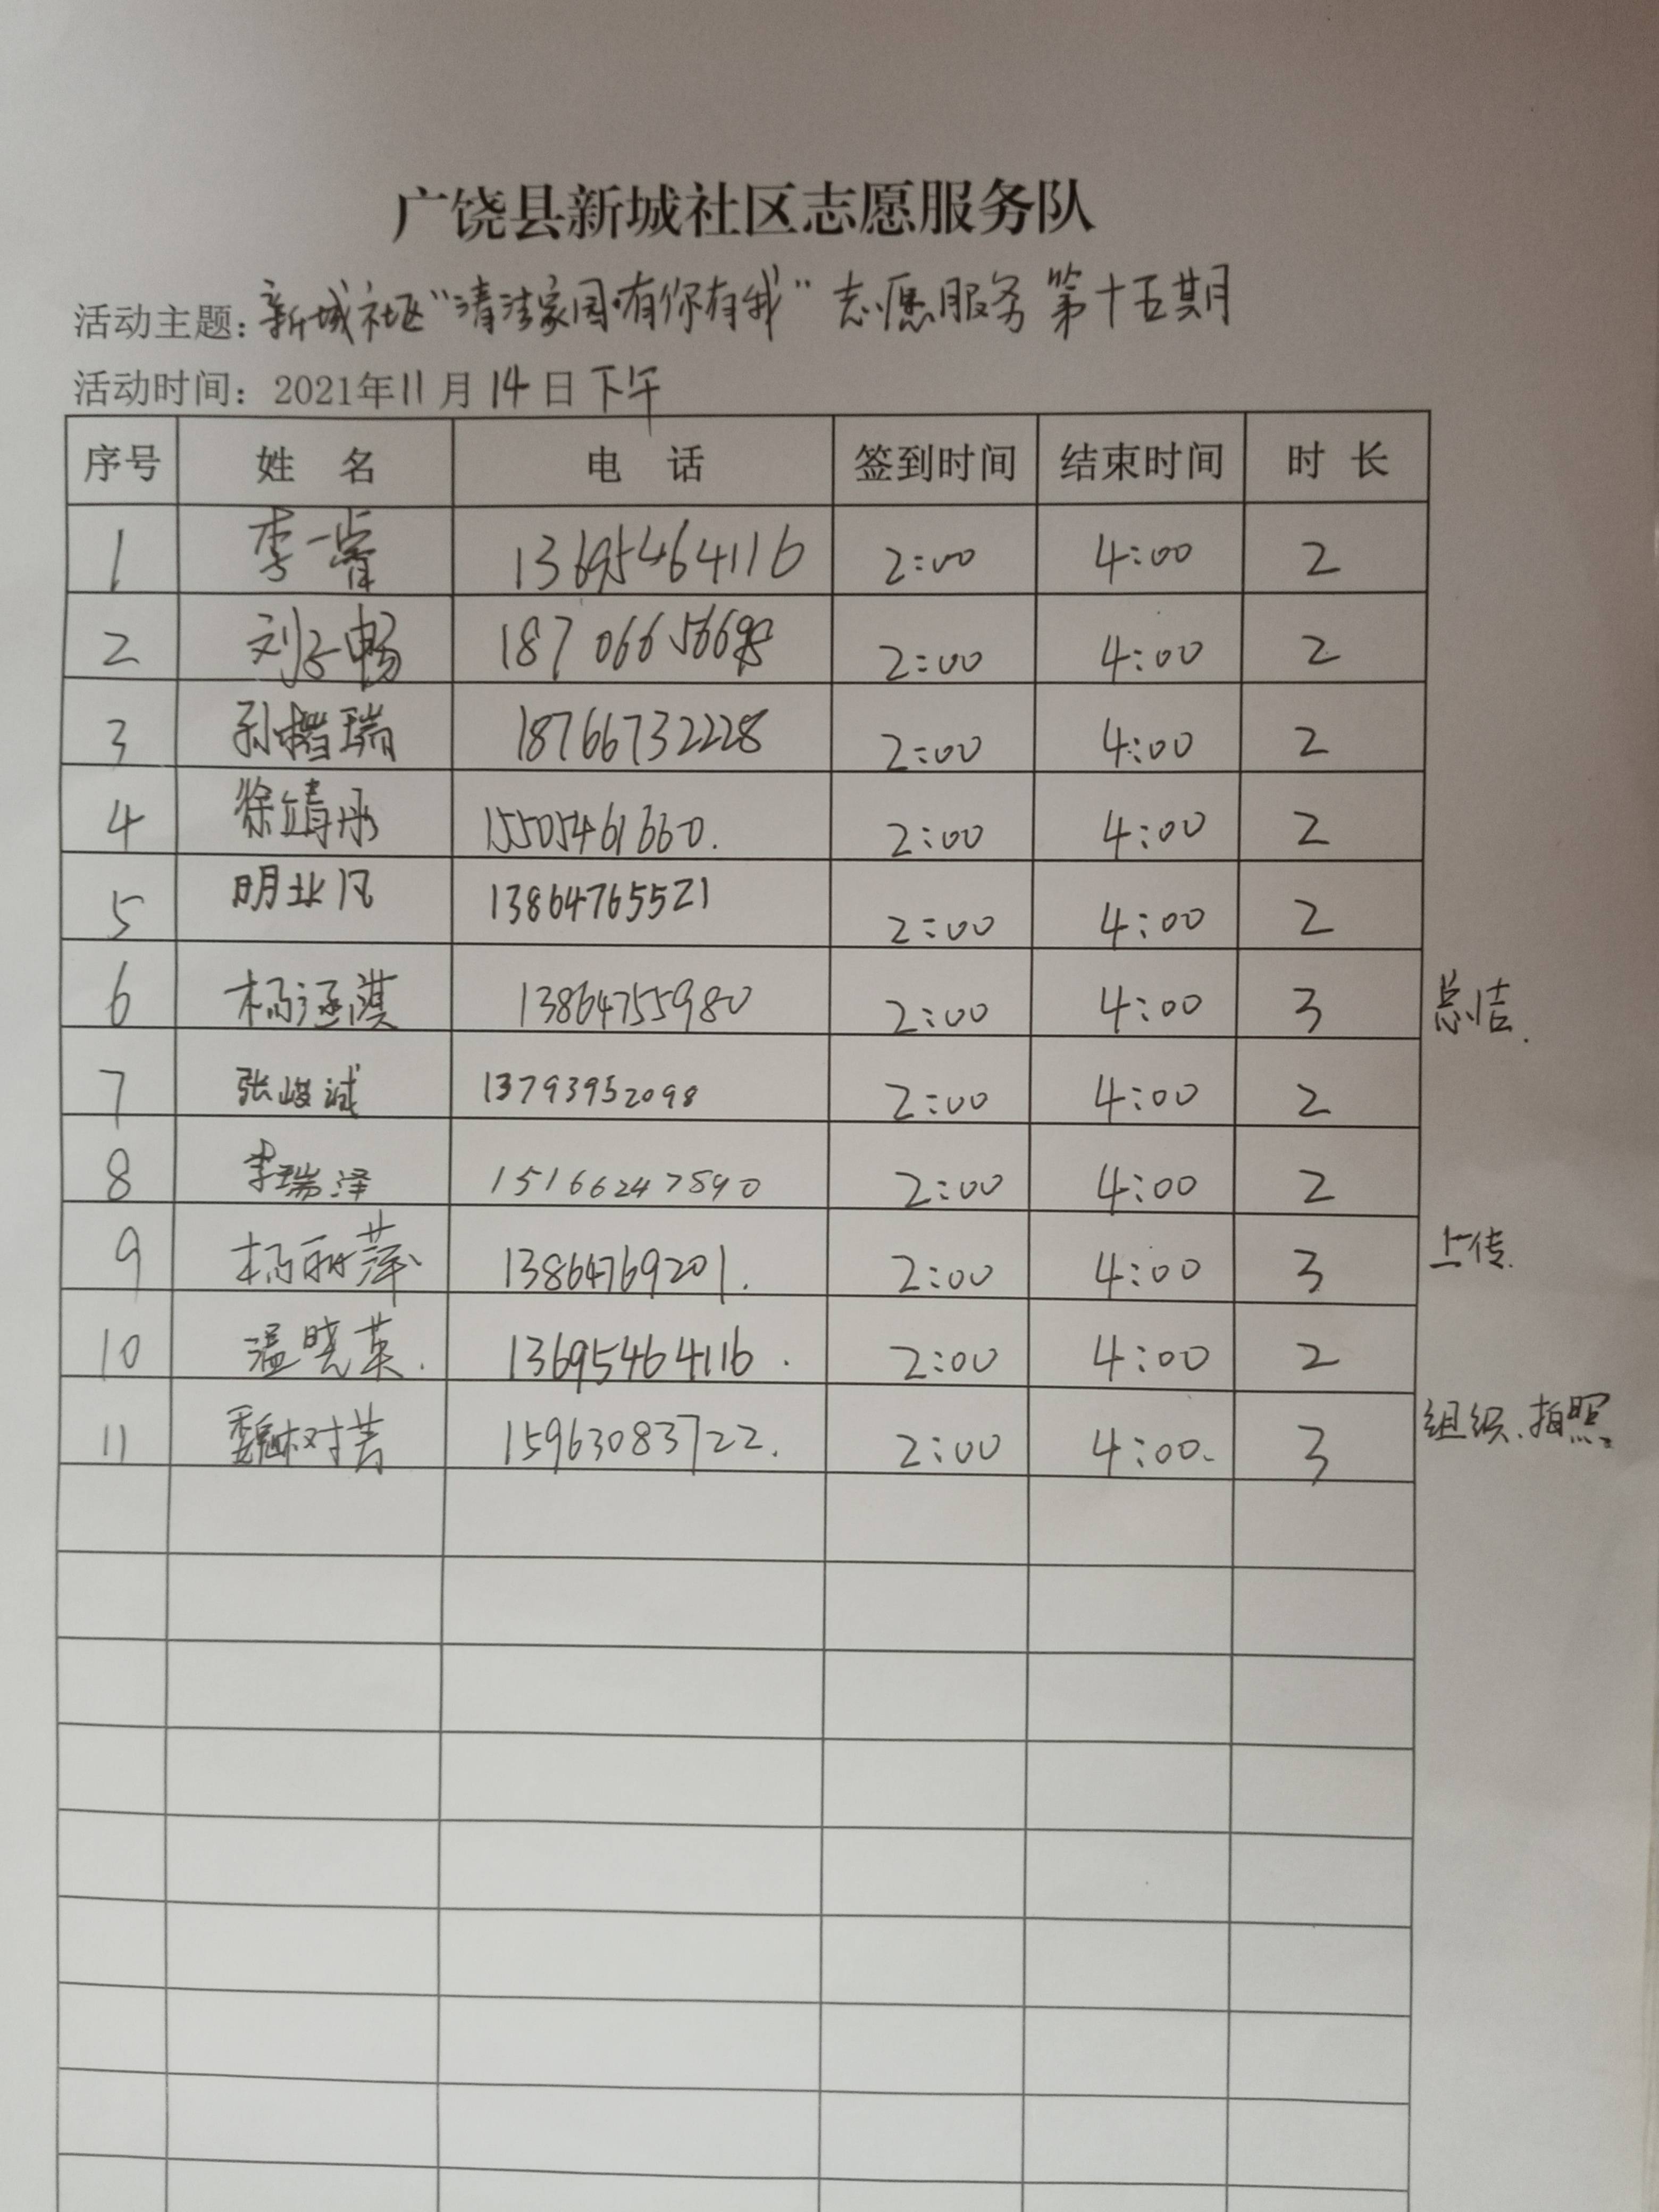 广饶县新城社区志愿服务队
活动主题：新城社区“清洁家园·有你有我”志愿服务第十五期
活动时间：2021年11月14日下午
序号 姓名 电话 签到时间 结束时间 时长
1 李一睿 13695464116 2:00 4:00 2
2 刘子畅 2:00 4:00 2
3 孙楷瑞 18766732228 2:00 4:00 2
4 徐靖彤 15505461660. 2:00 4:00 2
5 明业凡 13864765521 2:00 4:00 2
6 杨涵淇 13864755980 2:00 4:00 3 总结.
7 张峻诚 13793952098 2:00 4:00 2
8 李瑞泽 15166247890 2:00 4:00 2
9 杨丽萍 13864769201. 2:00 4:00 3 上传.
10 温晓英. 13695464116. 2:00 4:00 2
11 魏树芳 15963083722. 2:00 4:00. 3 组织、拍照